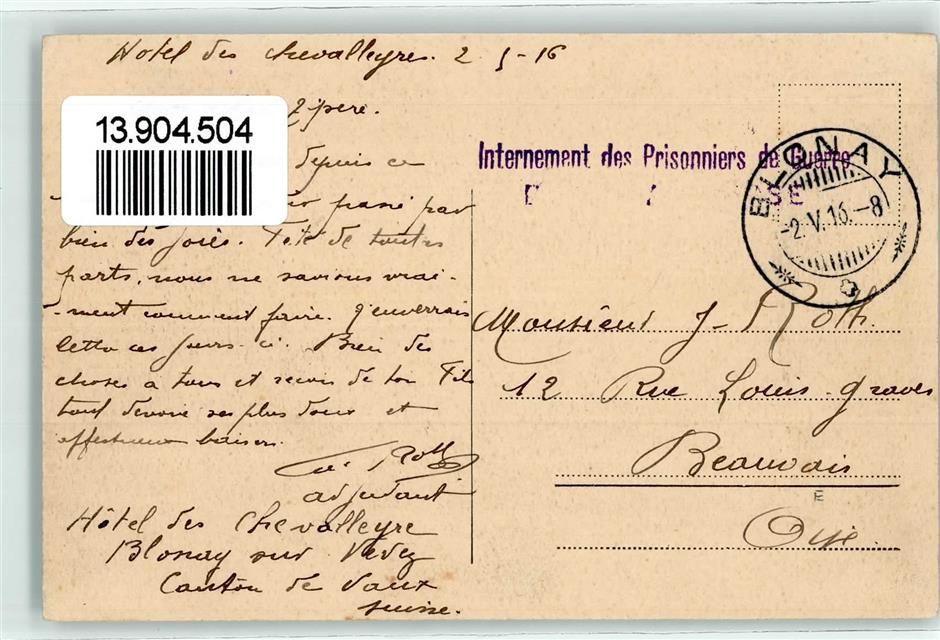 Hotel des Chevalleyres. 2-5-16
père.
13.904.504
depuis ce
passé par
bien des joies. Fêté de toutes
parts, nous ne savions vrai-
-ment comment faire. J'enverrai
lettre ces jours-ci. Bien des
choses à tous et reçois de ton Fils
tout dévoué ses plus doux et
affectueux baisers.
Roth
adjudant
Hôtel des Chevalleyre
Blonay sur Vevey
Canton de Vaux
Suisse.
Internement des Prisonniers de Guerre
SE
BLONAY
-2.V.16.-8
Monsieur J. Roth.
12 Rue Louis-Graves
Beauvais
E
Oise.